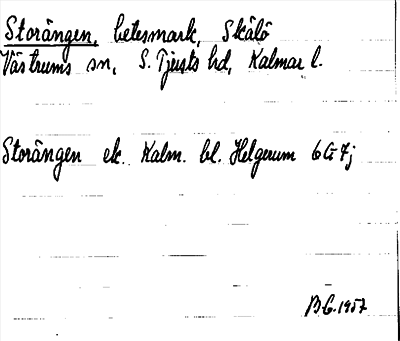 Storängen, betesmark, Skälö
Västrums sn, S. Tjusts hd, Kalmar l.
Storängen ek. Kalm. bl. Helgerum 6G7j
B.G. 1957